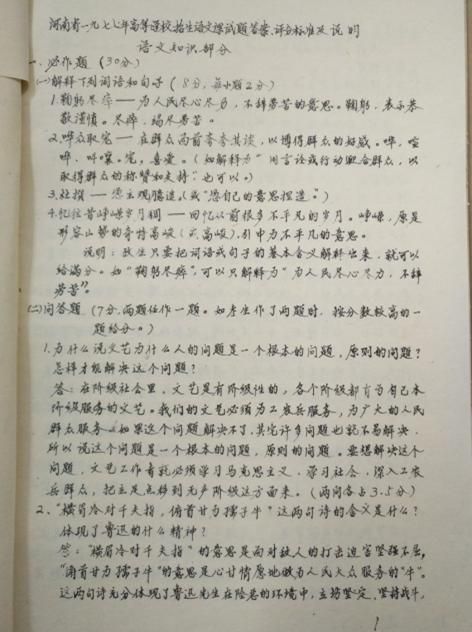 河南省一九七七年高等学校招生语文试题答案、评分标准及说明
语文知识部分
一、必作题（30分）
(一)解释下列词语和句子（8分，每小题2分）
1.鞠躬尽瘁——为人民尽心尽力，不辞劳苦的意思。鞠躬，表示恭
敬谨慎。尽瘁，竭尽劳苦。
2.哗众取宠——在群众面前夸夸其谈，以博得群众的好感。哗，喧
哗，叫嚷。宠，喜爱。（如解释为"用言论或行动迎合群众，以
取得群众的称赞和支持"也可以。）
3.杜撰——凭主观臆造。（或"凭自己的意思捏造"。）
4.忆往昔峥嵘岁月稠——回忆以前很多不平凡的岁月。峥嵘，原是
形容山势的奇特高峻（高峻），引申为不平凡的意思。
说明：考生只要把词语或句子的基本含义解释出来，就可以
给满分。如"鞠躬尽瘁"，可以只解释为"为人民尽心尽力，不辞
劳苦"。
(二)问答题（7分，两题任作一题。如考生作了两题时，按分数较高的一
题给分。）
1.为什么说文艺为什么人的问题是一个根本的问题，原则的问题？
怎样才能解决这个问题？
答：在阶级社会里，文艺是有阶级性的，各个阶级都有为自己本
阶级服务的文艺。我们的文艺必须为工农兵服务，为广大的人民
群众服务。如果这个问题解决不了，其它许多问题也就不易解决。
所以说这个问题是一个根本的问题，原则的问题。要想解决这个
问题，文艺工作者就必须学习马克思主义，学习社会，深入工农
兵群众，把立足点移到无产阶级这方面来。（两问各占3.5分）
2、"横眉冷对千夫指，俯首甘为孺子牛"这两句诗的含义是什么？
体现了鲁迅的什么精神？
答："横眉冷对千夫指"的意思是面对敌人的打击迫害坚强不屈，
"俯首甘为孺子牛"的意思是心甘情愿地做为人民大众服务的"牛"。
这两句诗充分体现了鲁迅先生在险恶的环境中，立场坚定、坚持战斗，
1